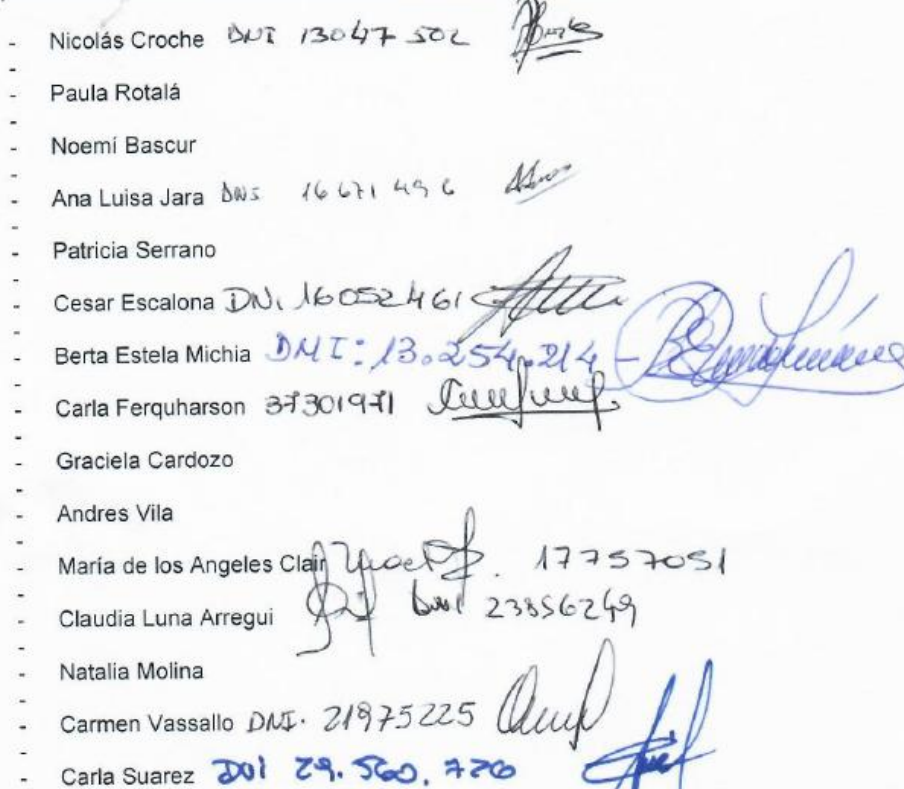 - Nicolás Croche DNI 13047502
- Paula Rotalá
- Noemí Bascur
- Ana Luisa Jara DNI 16671496
- Patricia Serrano
- Cesar Escalona DNI 16052461
- Berta Estela Michia DNI: 13.254.214 -
- Carla Ferquharson 37301971
- Graciela Cardozo
- Andres Vila
- María de los Angeles Clair 17757051
- Claudia Luna Arregui DNI 23856249
- Natalia Molina
- Carmen Vassallo DNI. 21975225
- Carla Suarez DNI 29.560.720